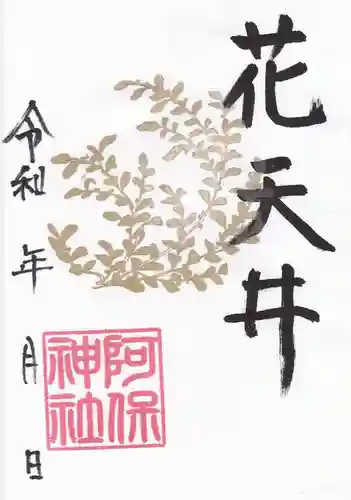 花天井
阿保神社
令和 年 月 日